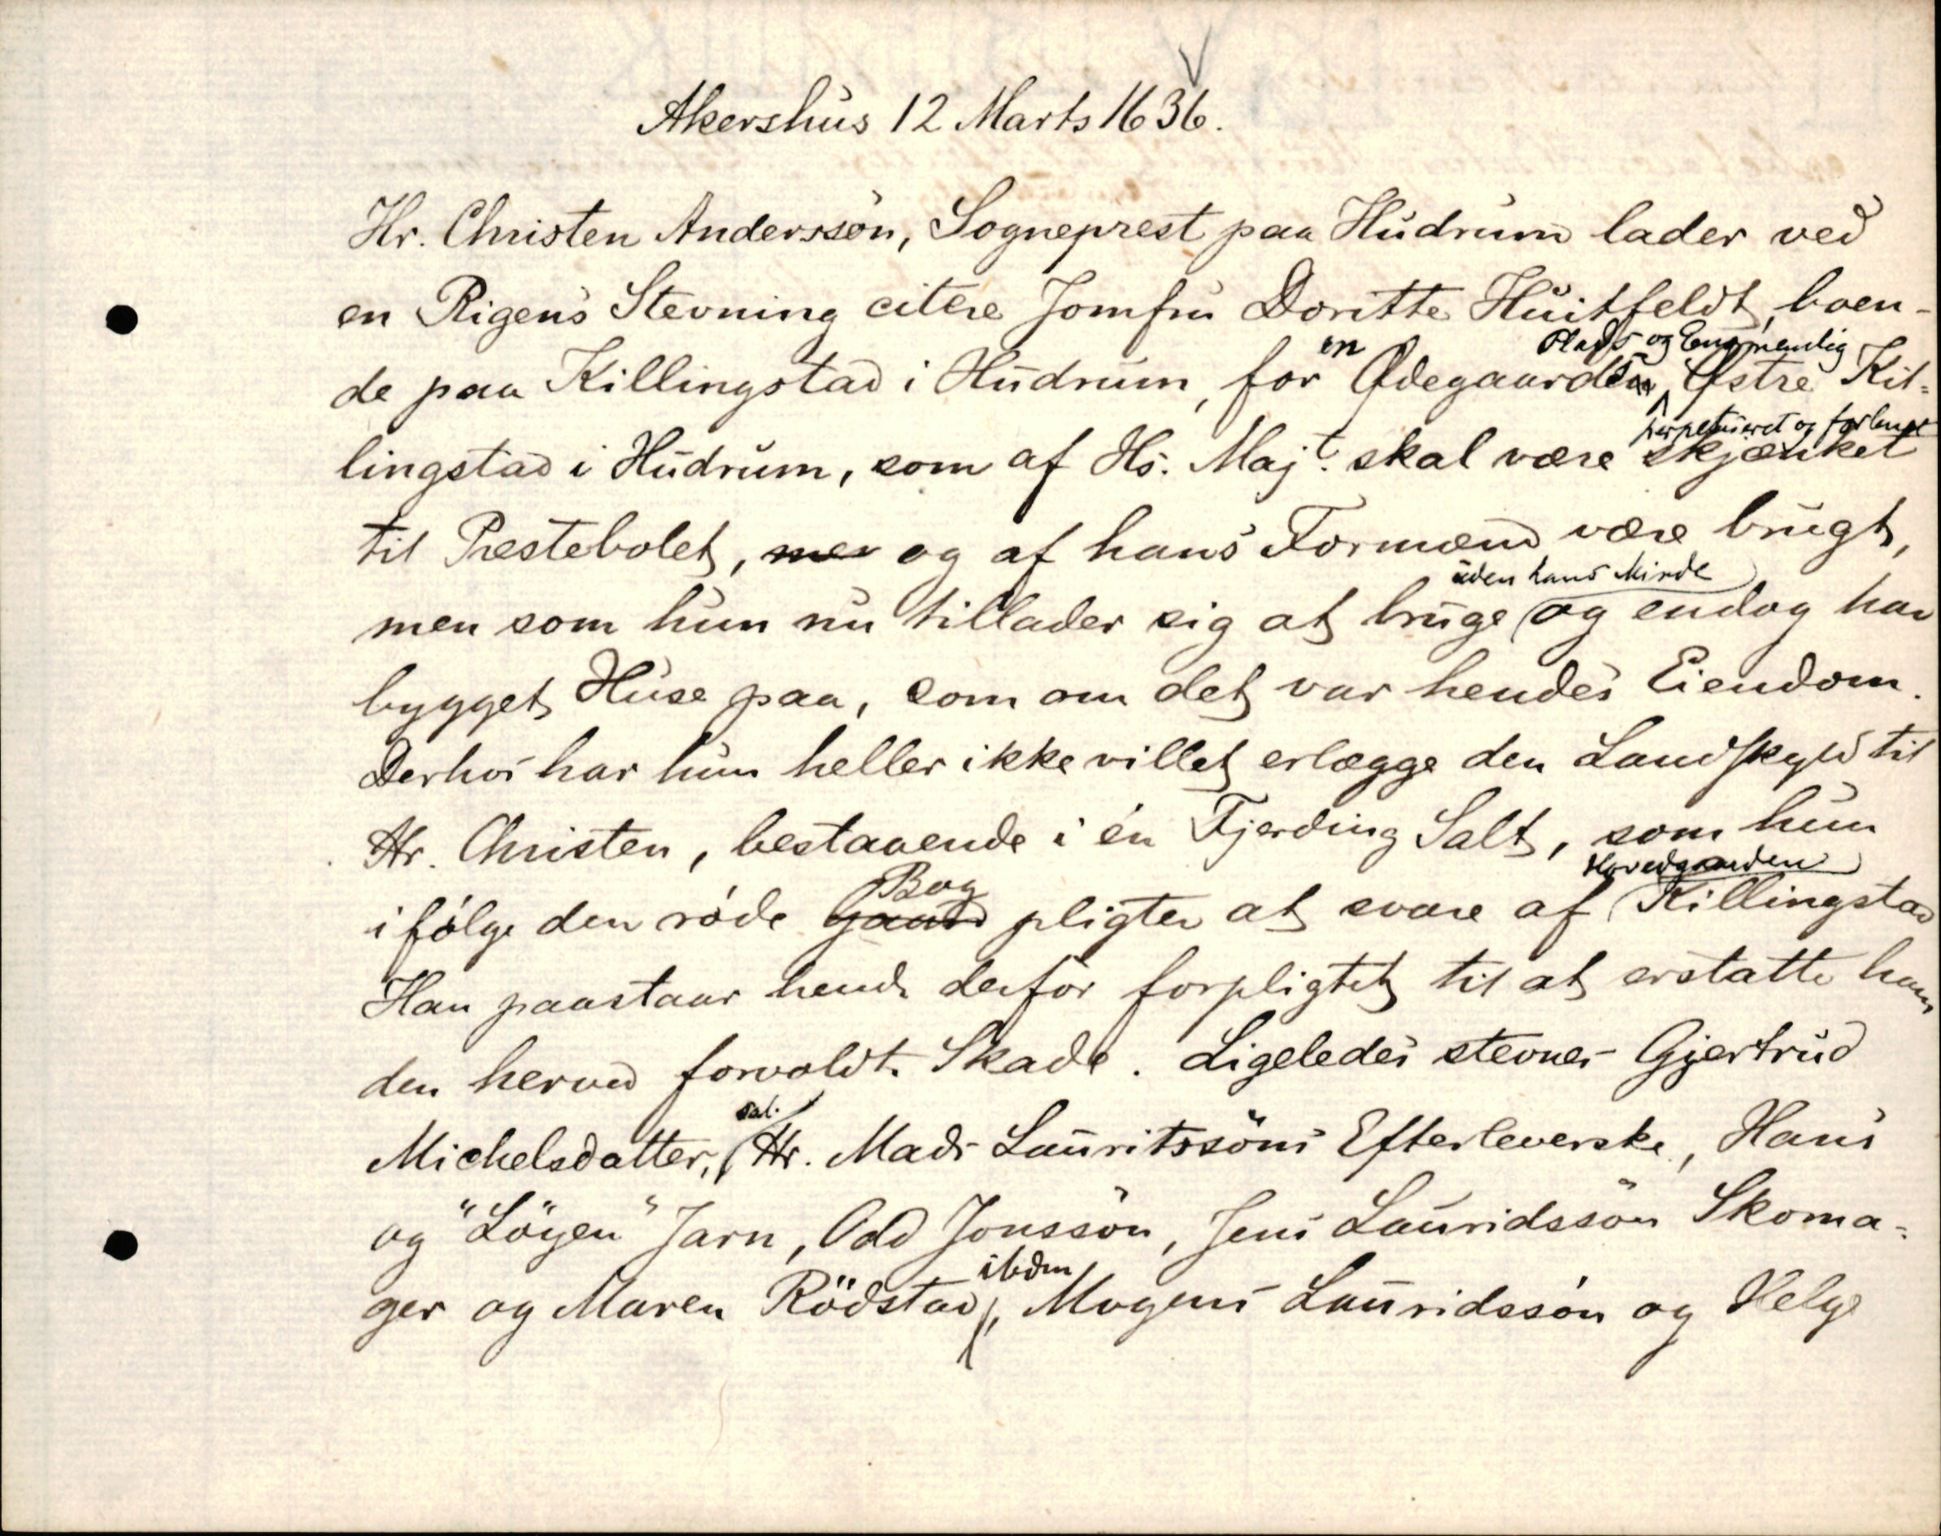 Akershus 12 Marts 1636.
Hr. Christen Anderssön, Sogneprest paa Hudrum lader ved
en Rigens Stevning citere Jomfru Doritte Huitfeldt, boen-
de paa Killingstad i Hudrum, for en Ødegaards Plads og Eng nemlig Østre Kil-
lingstad i Hudrum, som af Hs. Majt. skal være perpetueret og forlent skjænket
til Prestebolet, og af hans Formænd være brugt,
men som hun nu tillader sig at bruge uden hans Minde og endog har
bygget Huse paa, som om det var hendes Eiendom.
Derhos har hun heller ikke villet erlægge den Landskyld til
Hr. Christen, bestaaende i én Fjerding Salt, som hun
ifölge den röde Bog pligter at svare af Hovedgaarden Killingstad
Han paastaar hende derfor forpligtet til at erstatte ham
den herved forvoldte Skade. Ligeledes stevnes Gjertrud
Michelsdatter, sal. Hr. Mads Lauritssöns Efterleverske, Hans
og "Löyen" Jarn, Odd Jonssön, Jens Lauridssön Skoma-
ger og Maren Rödstad ibdm, Mogens Lauridssön og Helge